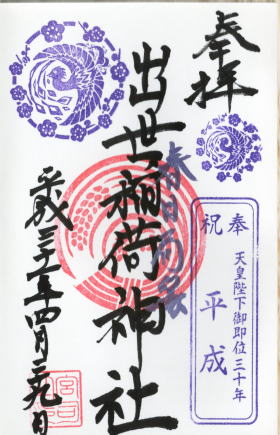 奉拝
奉祝
天皇陛下御即位三十年
平成
春日出雲
出世稲荷神社
平成三十一年四月二九日
宮司